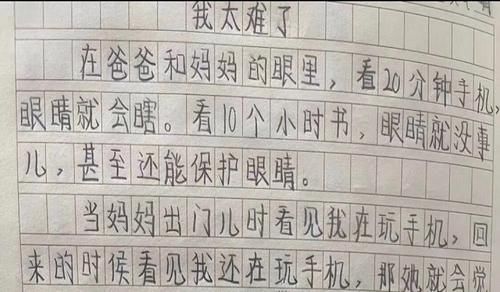 我太难了
在爸爸和妈妈的眼里，看20分钟手机，
眼睛就会瞎。看10个小时书，眼睛就没事
儿，甚至还能保护眼睛。
当妈妈出门儿时看见我在玩手机，回
来的时候看见我还在玩手机，那她就会觉